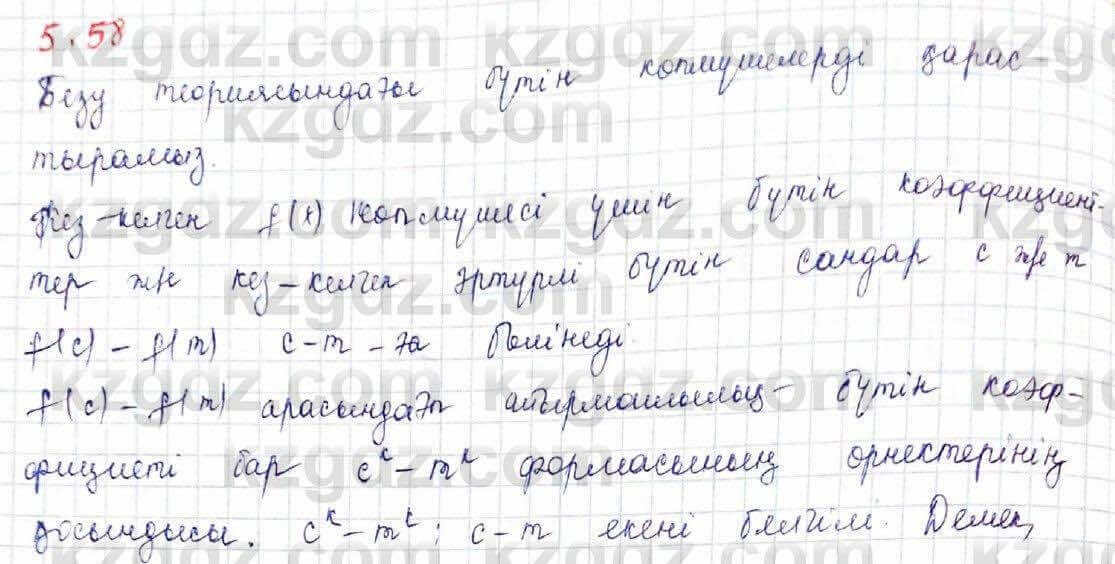 5.58
Безу теориясындағы бүтін көпмүшелерді қарас-
тырамыз.
Кез-келген f(x) көпмүшесі үшін бүтін коэффициент-
тер және кез-келген әртүрлі бүтін сандар c және m
f(c) - f(m) c-m-ға бөлінеді.
f(c) - f(m) арасындағы айырмашылық - бүтін коэф-
фициенті бар c^k - m^k формасының өрнектерінің
қосындысы. c^k - m^k : c-m екені белгілі. Демек,
kzgdz.com